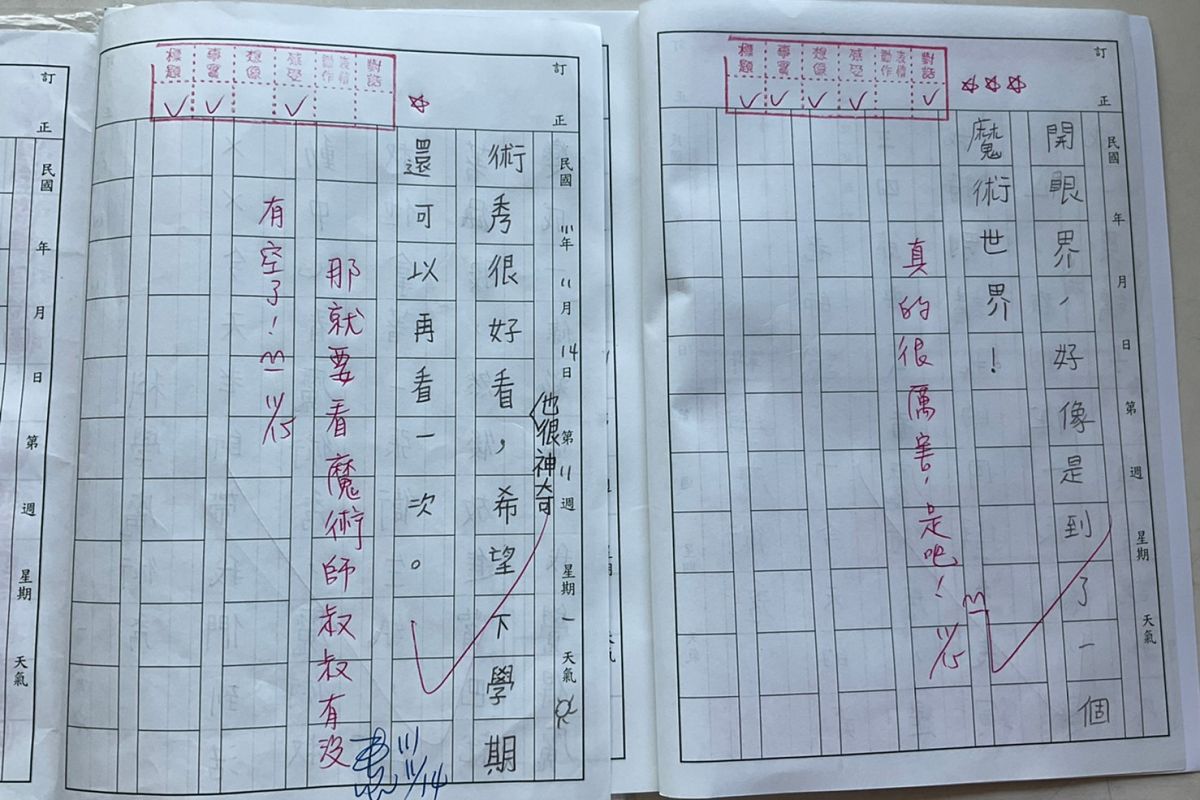 對話
表情動作
感受
想像
事實
標題
訂正
民國 年 月 日 第 週 星期 天氣
開眼界,好像是到了一個
魔術世界!
真的很厲害,是吧!
11/15
對話
表情動作
感受
想像
事實
標題
訂正
民國 111年 11月 14日 第 11週 星期 一 天氣
也很神奇
術秀很好看,希望下學期
還可以再看一次。
那就要看魔術師叔叔有沒
有空了!
11/15
111
11/14
訂正
民國 年 月 日 第 週 星期 天氣